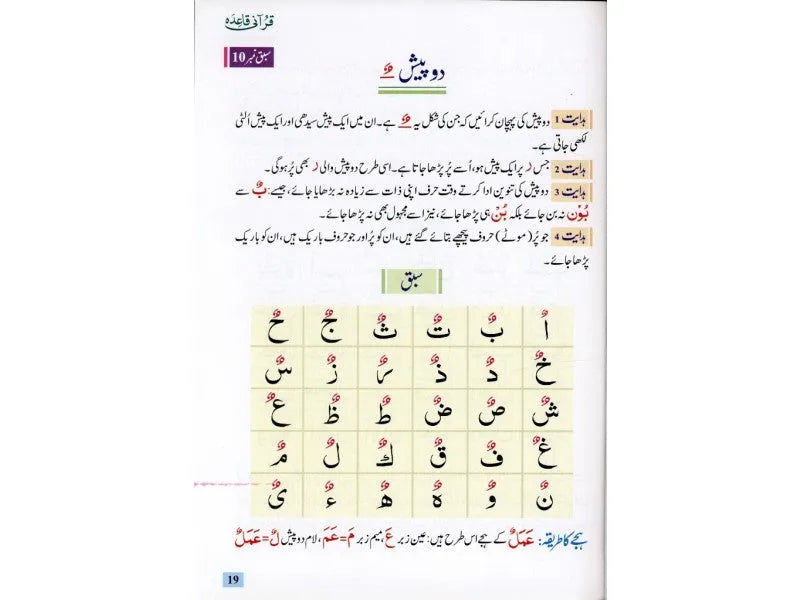 قرآنی قاعدہ
سبق نمبر 10
دو پیش ـٌ
ہدایت 1 دو پیش کی پہچان کرائیں کہ جن کی شکل یہ ـٌ ہے۔ ان میں ایک پیش سیدھی اور ایک پیش اُلٹی
لکھی جاتی ہے۔
ہدایت 2 جس ر پر ایک پیش ہو، اُسے پُر پڑھا جاتا ہے۔ اسی طرح دو پیش والی ر بھی پُر ہوگی۔
ہدایت 3 دو پیش کی تنوین ادا کرتے وقت حرف اپنی ذات سے زیادہ نہ بڑھایا جائے، جیسے: بٌ سے
بُوْن نہ بن جائے بلکہ بُنْ ہی پڑھا جائے، نیز اسے مجہول بھی نہ پڑھا جائے۔
ہدایت 4 جو پُر (موٹے) حروف پیچھے بتائے گئے ہیں، ان کو پُر اور جو حروف باریک ہیں، ان کو باریک
پڑھا جائے۔
سبق
اٌ بٌ تٌ ثٌ جٌ حٌ
خٌ دٌ ذٌ رٌ زٌ سٌ
شٌ صٌ ضٌ طٌ ظٌ عٌ
غٌ فٌ قٌ كٌ لٌ مٌ
نٌ وٌ ہٌ ھٌ ءٌ یٌ
ہجے کا طریقہ: عَمَلٌ کے ہجے اس طرح ہیں: عین زبر عَ، میم زبر مَ=عَمَ، لام دو پیش لٌ=عَمَلٌ
19